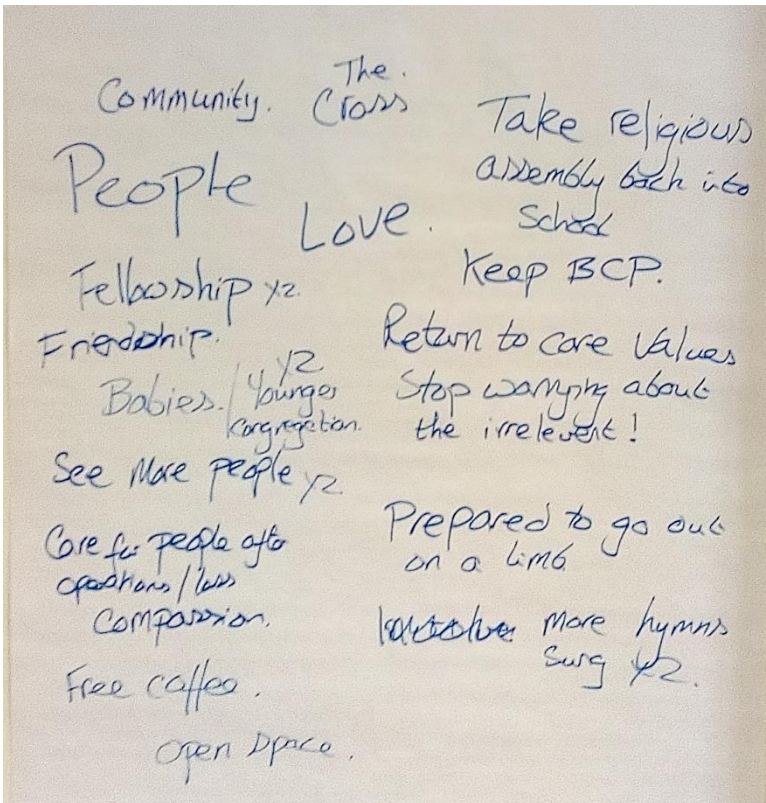 Community.
The.
Cross
People
Love.
Fellowship x2.
Friendship.
Babies. / Younger x2
Congregation.
See More people x2.
Care for people after
operations / loss
Compassion.
Free coffee.
Open space.
Take religious
assembly back into
School
Keep BCP.
Return to core Values
Stop worrying about
the irrelevent!
Prepared to go out
on a limb
more hymns
Sung x2.